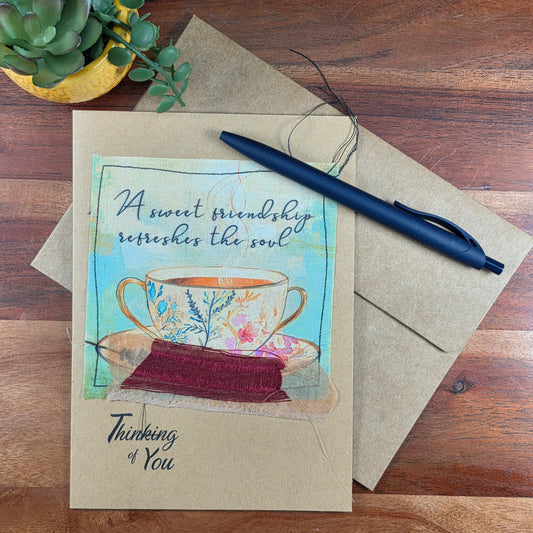 A sweet friendship
refreshes the soul
Thinking
of You